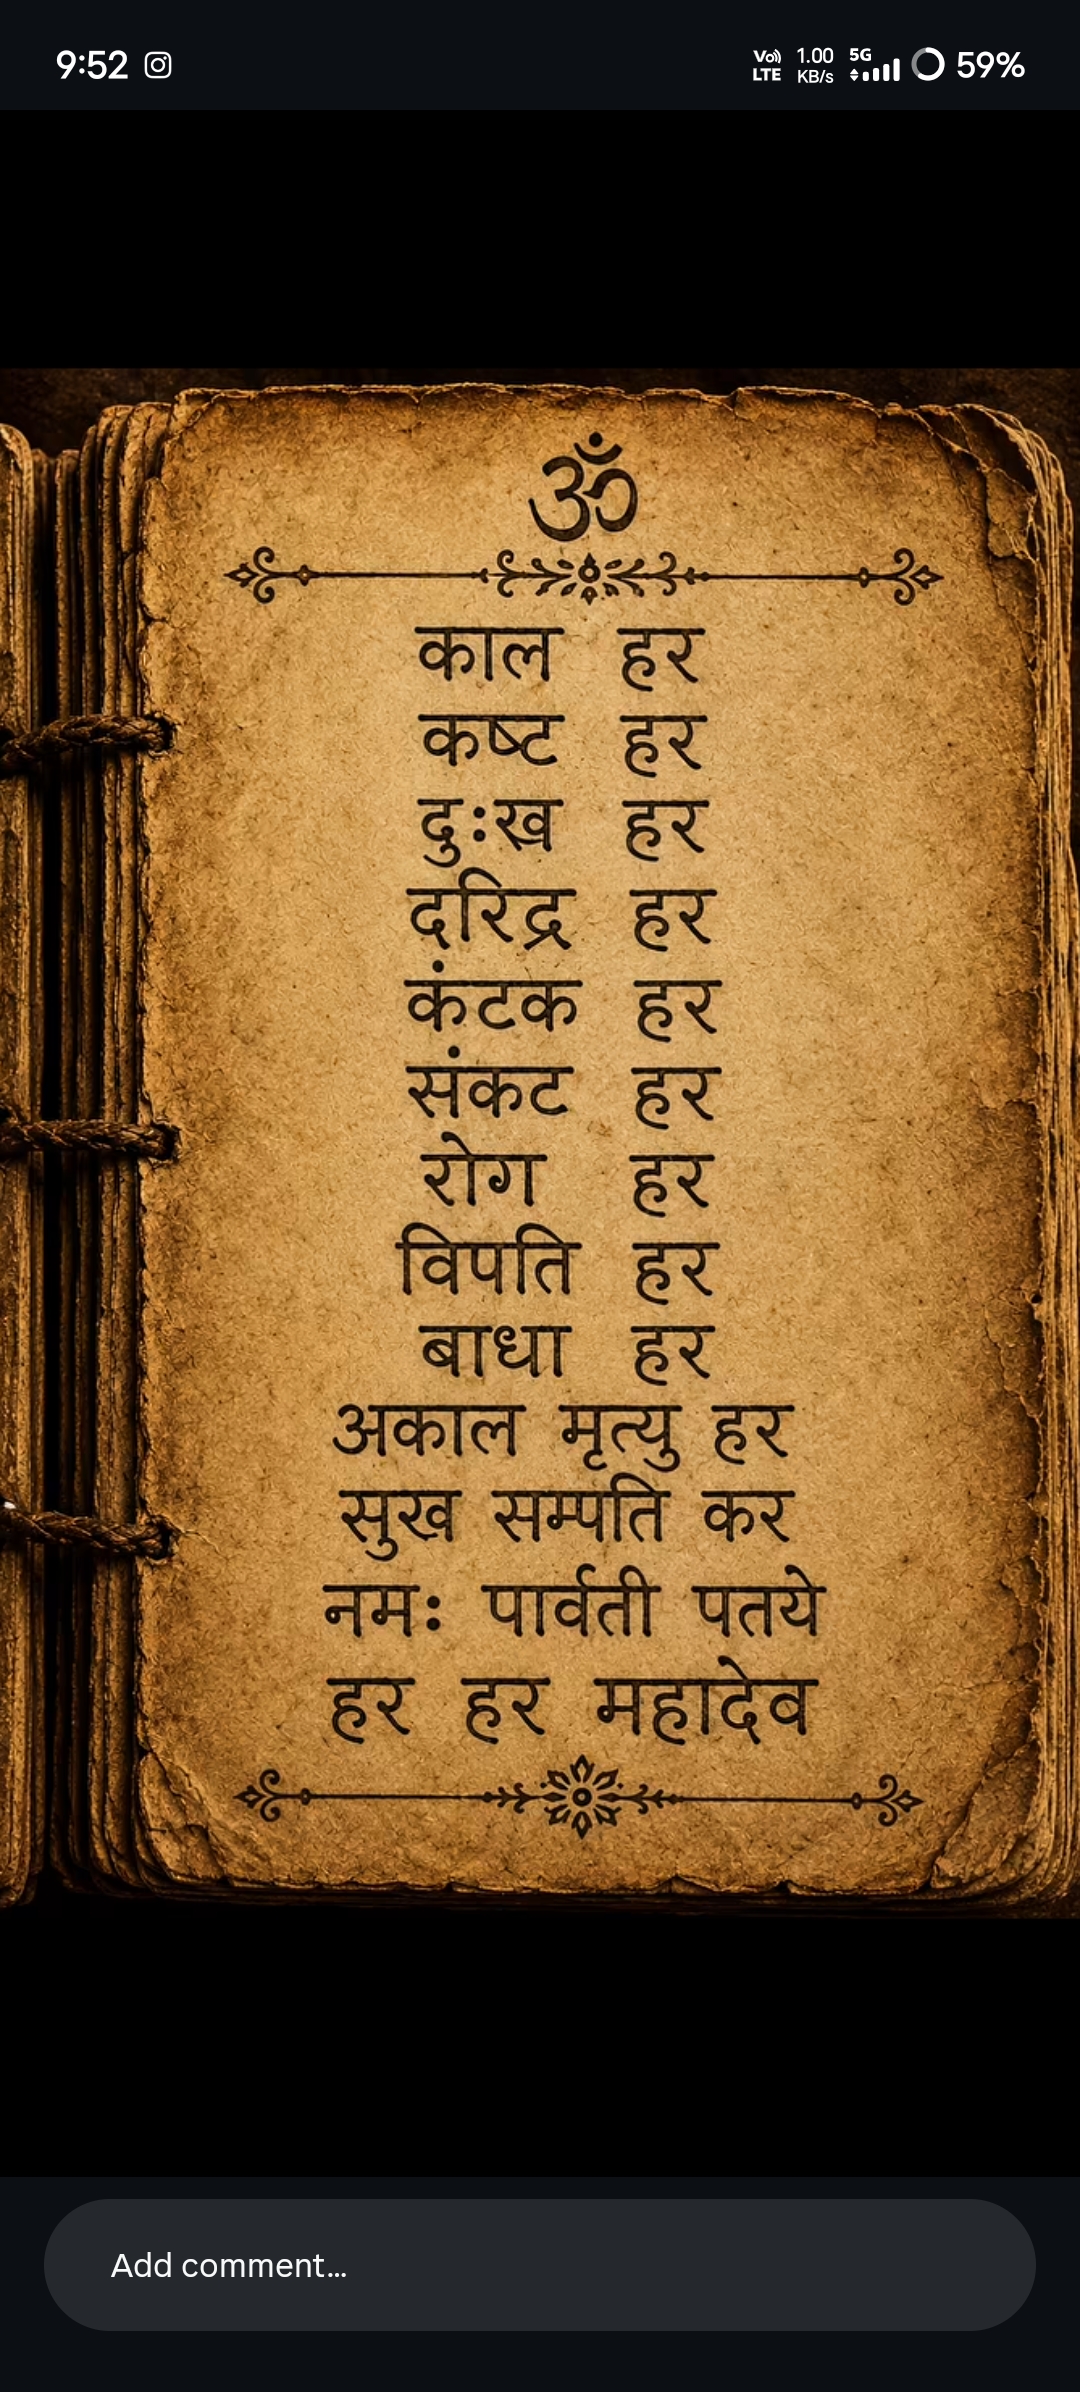 9:52
Vo)) LTE 1.00 KB/s 5G 59%
ॐ
काल हर
कष्ट हर
दुःख हर
दरिद्र हर
कंटक हर
संकट हर
रोग हर
विपति हर
बाधा हर
अकाल मृत्यु हर
सुख सम्पति कर
नमः पार्वती पतये
हर हर महादेव
Add comment...